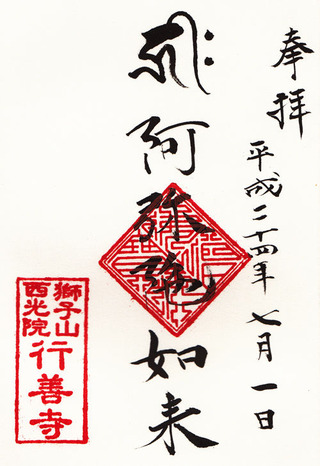 奉拝
平成二十四年七月一日
阿弥陀如来
獅子山
西光院
行善寺